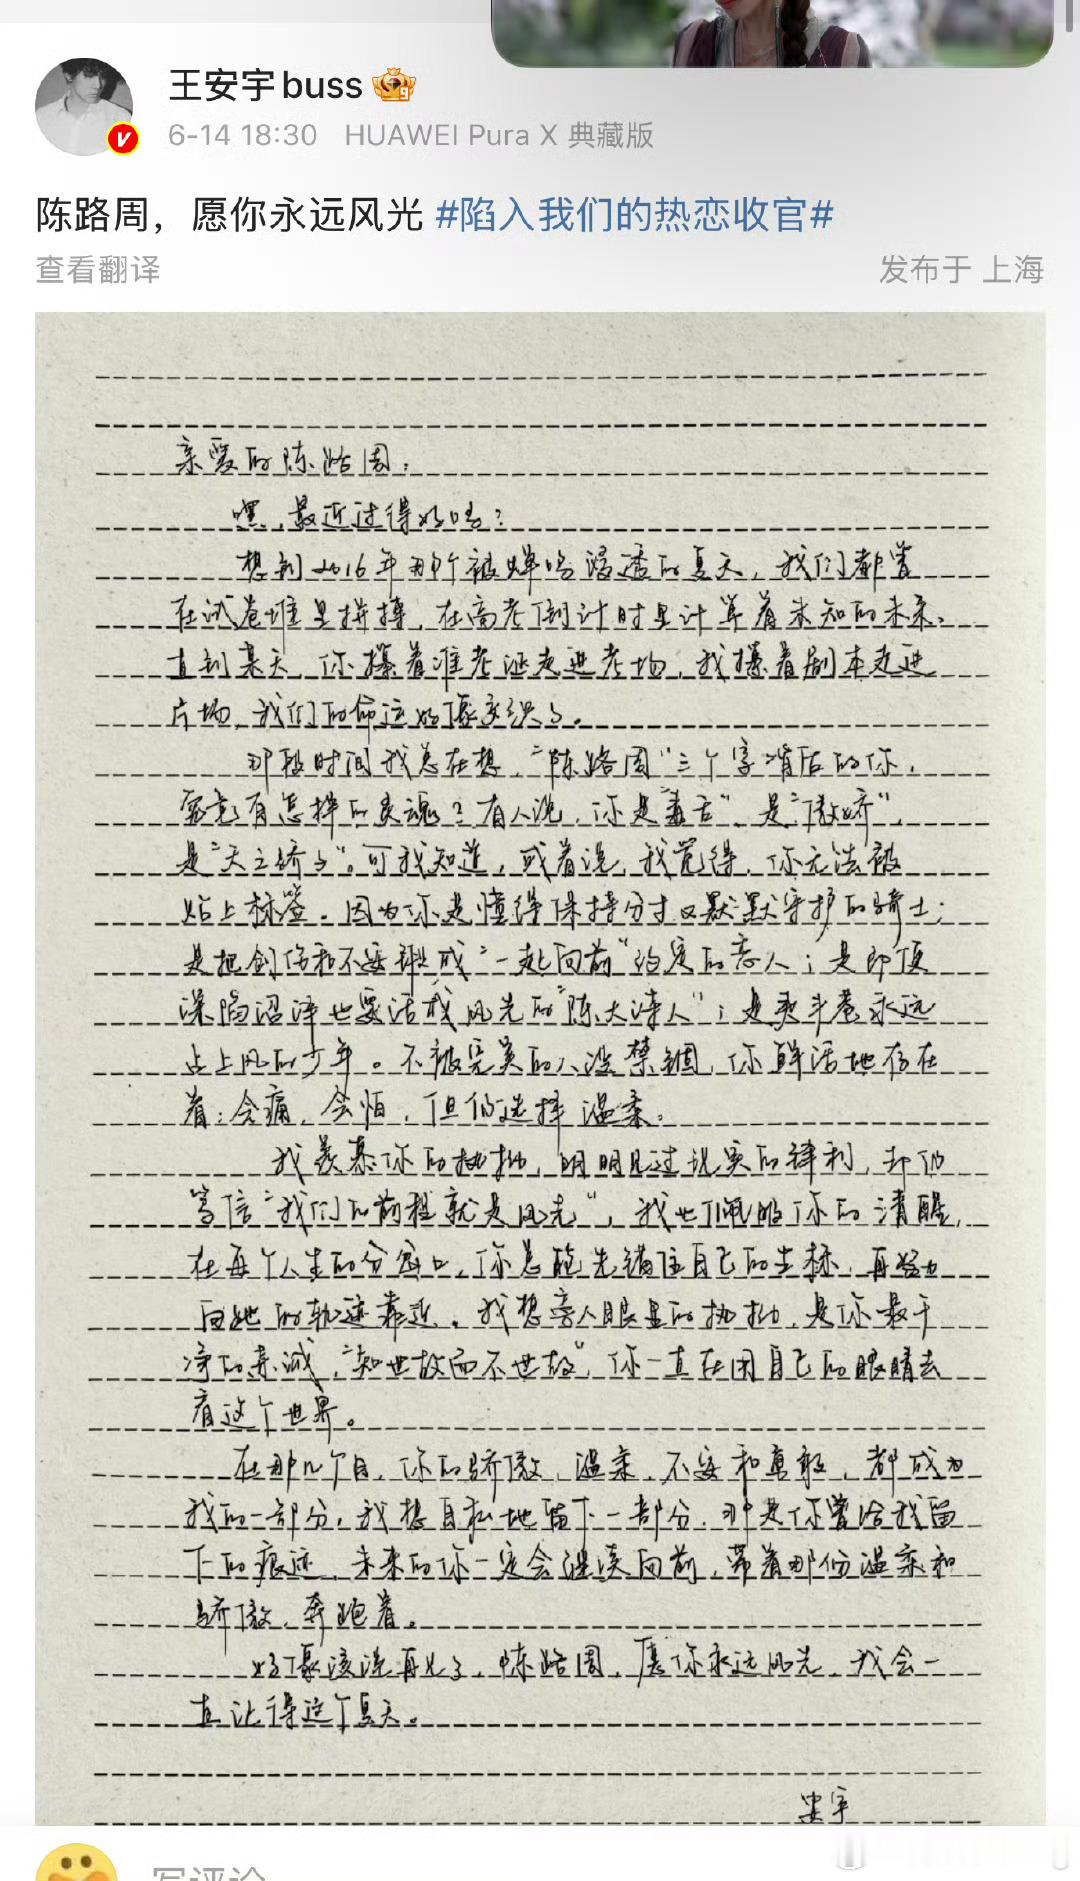 王安宇buss
6-14 18:30 HUAWEI Pura X 典藏版
陈路周，愿你永远风光 #陷入我们的热恋收官#
查看翻译
发布于 上海
亲爱的陈路周：
嘿，最近过得好吗？
想到2016年那个被蝉鸣浸透的夏天，我们都曾
在试卷堆里拼搏，在高考倒计时里计算着未知的未来。
直到某天，你攥着准考证走进考场，我攥着剧本走进
片场，我们的命运好像交织了。
那段时间我总在想，“陈路周”三个字背后的你，
究竟有怎样的灵魂？有人说，你是“毒舌”、是“傲娇”、
是“天之骄子”。可我知道，或者说，我觉得，你无法被
贴上标签。因为你是懂得保持分寸又默默守护的骑士；
是把创伤和不安酿成“一起向前”约定的恋人；是即便
深陷沼泽也要活成风光的“陈大诗人”；是卖斗卷永远
占上风的少年。不被完美的人设禁锢，你鲜活地存在
着：会痛，会怕，但仍选择温柔。
我羡慕你的执拗，明明见过现实的锋利，却仍
笃信“我们的前程就是风光”，我也佩服你的清醒，
在每个人生的分岔口，你总能先锚定自己的坐标，再努力
向她的轨迹靠近。我想旁人眼里的执拗，是你最干
净的赤诚，“知世故而不世故”，你一直在用自己的眼睛去
看这个世界。
在那几个月，你的骄傲、温柔、不安和勇敢，都成为
我的一部分，我想自私地留下一部分，那是你曾给我留
下的痕迹，未来的你一定会继续向前，带着那份温柔和
骄傲，奔跑着。
好像该说再见了，陈路周，愿你永远风光，我会一
直记得这个夏天。
安宇
写评论